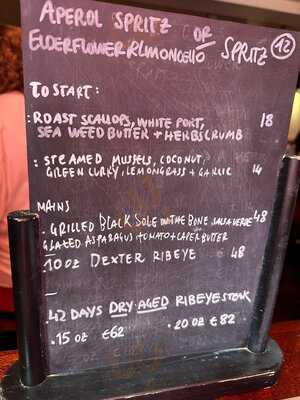 APEROL SPRITZ OR
ELDERFLOWER R LIMONCELLO SPRITZ 12
TO START:
: ROAST SCALLOPS, WHITE PORT, 18
SEA WEED BUTTER + HERBS CRUMB
: STEAMED MUSSELS, COCONUT,
GREEN CURRY, LEMONGRASS + GARLIC 14
MAINS
. GRILLED BLACK SOLE ON THE BONE SALSA VERDE 48
GLAZED ASPARAGUS + TOMATO + CAPER BUTTER
10 OZ DEXTER RIBEYE - 48
42 DAYS DRY AGED RIBEYE STEAK
. 15 OZ €62 . 20 OZ €82